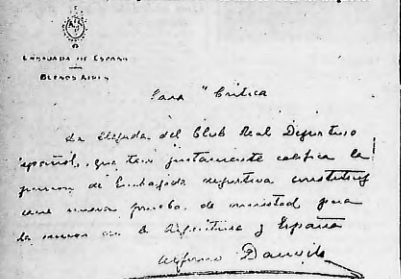 EMBAJADA DE ESPAÑA
BUENOS AIRES
Para "Crítica
La llegada del Club Real Deportivo
Español, que tan justamente califica la
de Embajada deportiva constituye
una nueva prueba de amistad
la Argentina y España
Alfonso Danvila